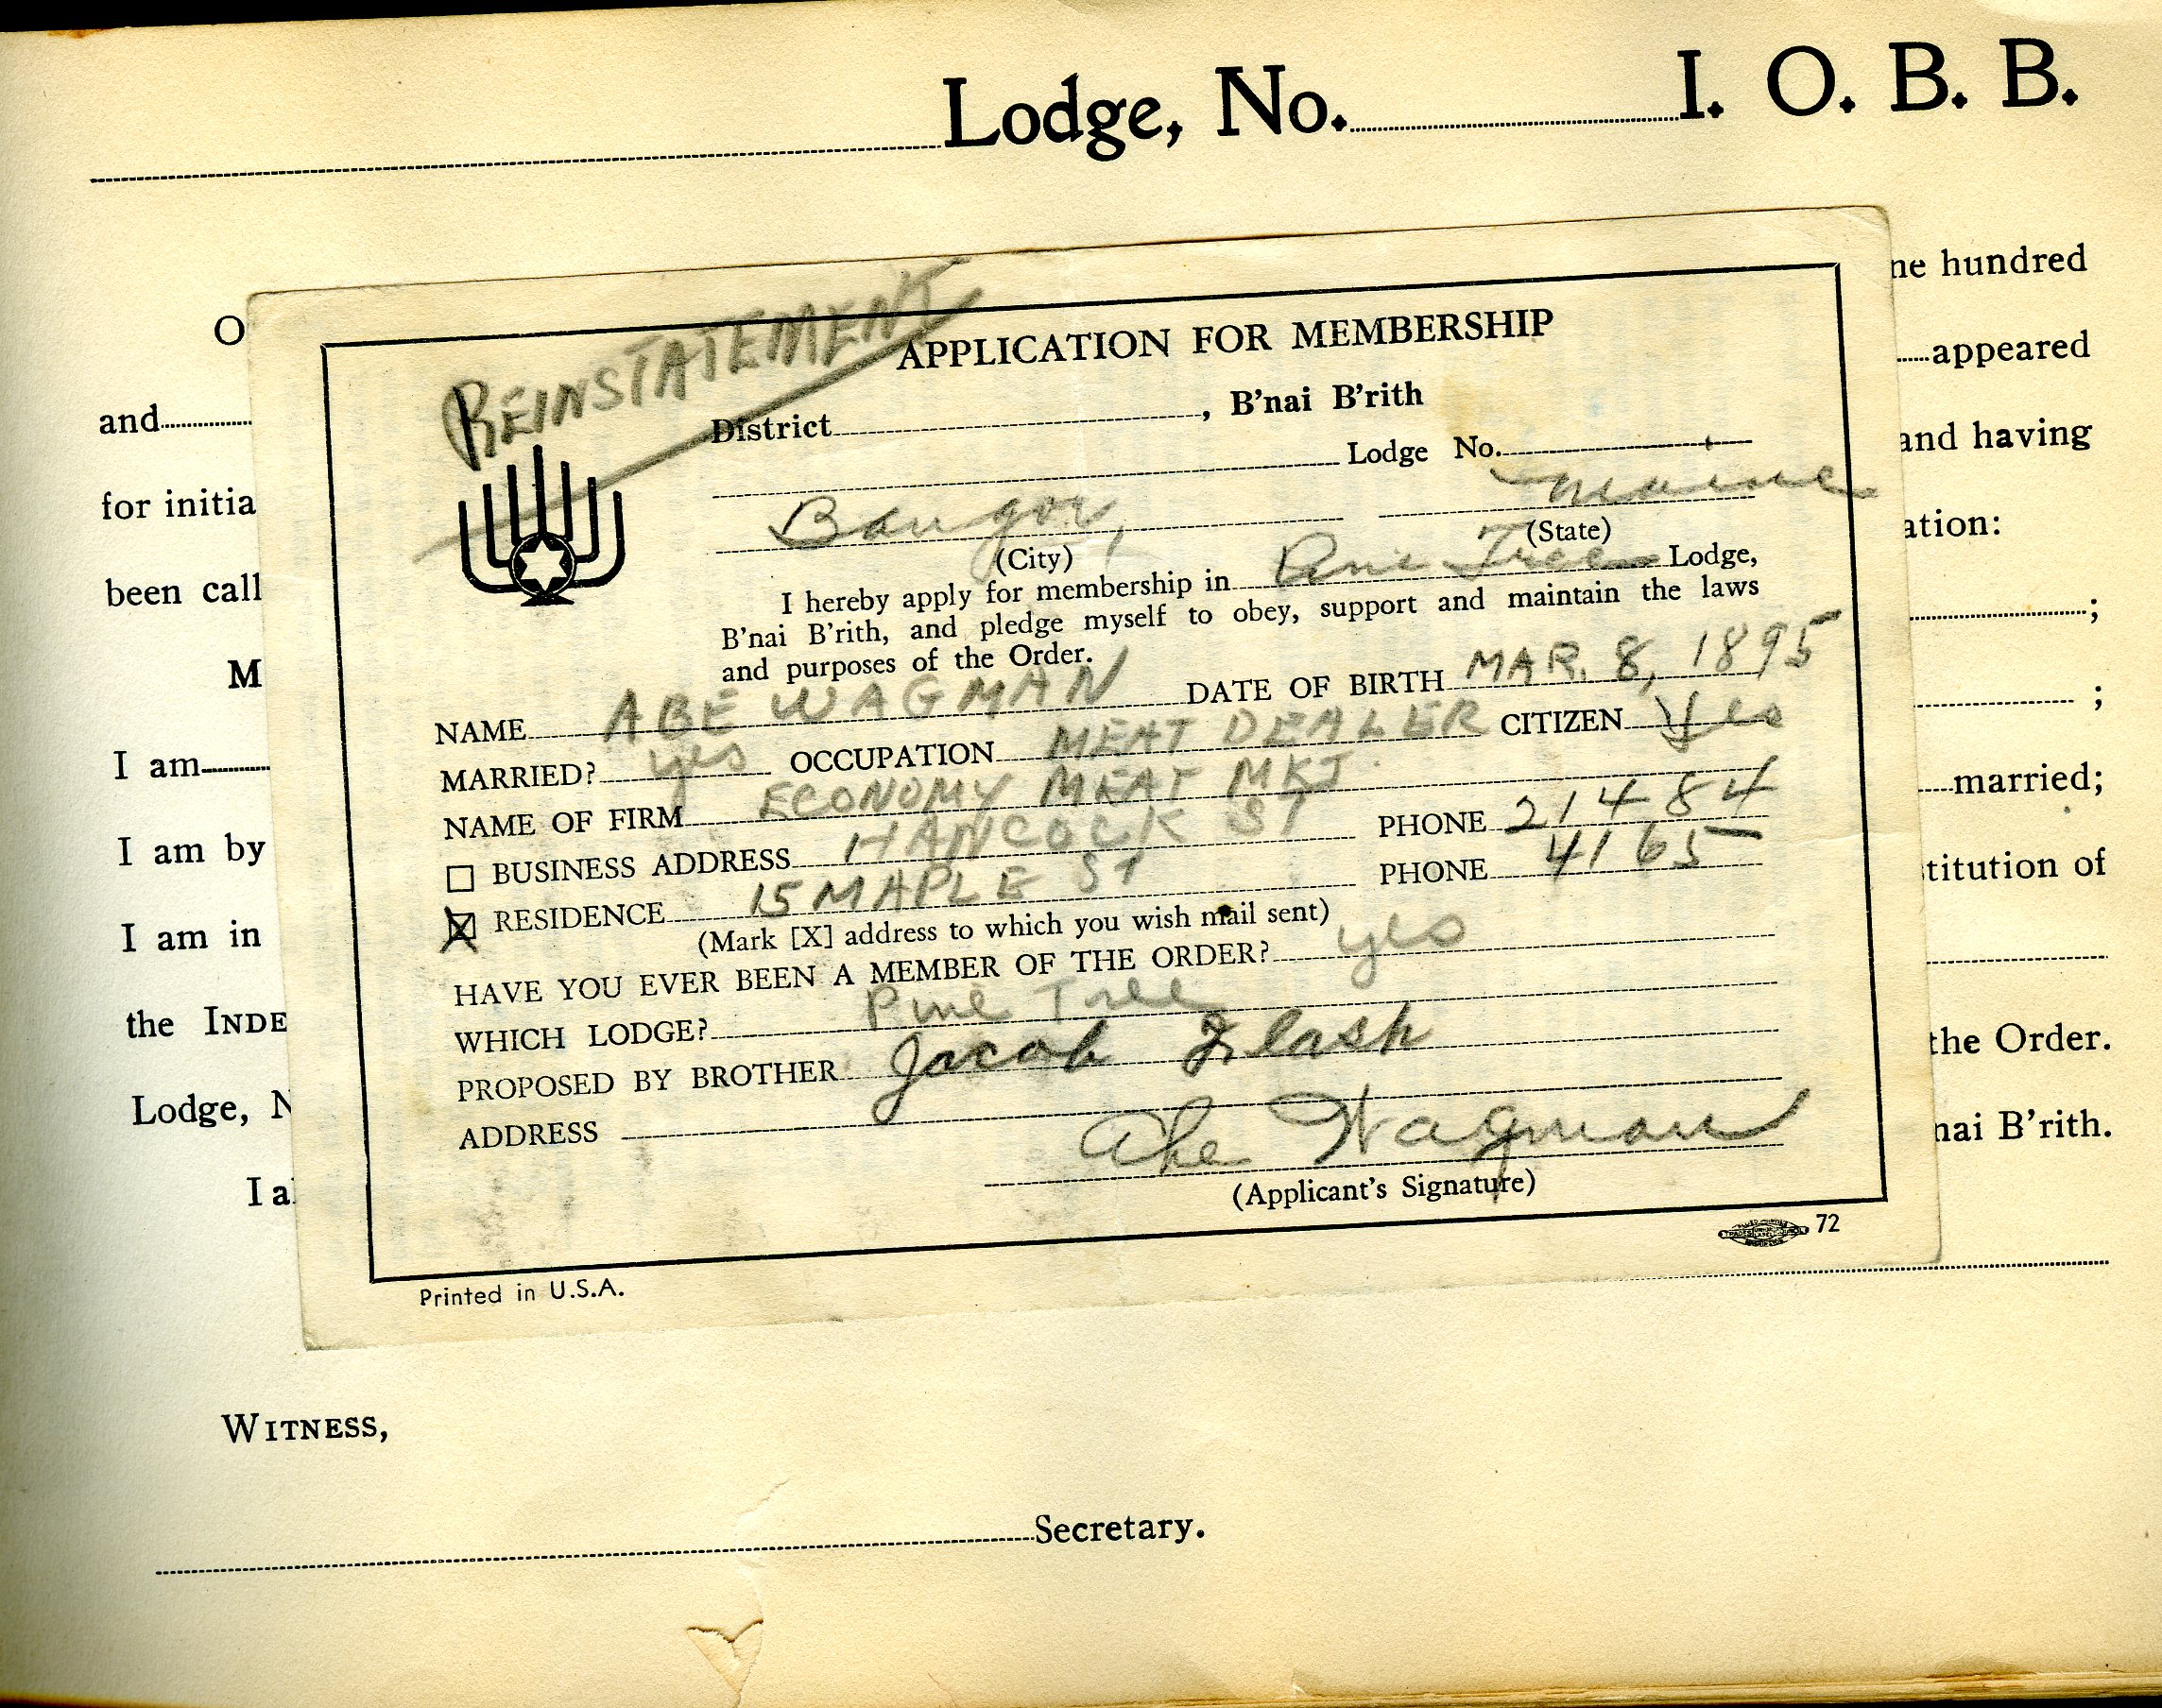 Lodge, No. I. O. B. B.
ne hundred
O
appeared
and
and having
for initia
ation:
been call
;
M
;
I am
married;
I am by
titution of
I am in
the INDE
the Order.
Lodge, N
nai B'rith.
I a
REINSTATEMENT
APPLICATION FOR MEMBERSHIP
District , B'nai B'rith
Lodge No.
Bangor, Maine
(City) (State)
I hereby apply for membership in Pine Tree Lodge,
B'nai B'rith, and pledge myself to obey, support and maintain the laws
and purposes of the Order.
NAME ABE WAGMAN DATE OF BIRTH MAR. 8, 1895
MARRIED? yes OCCUPATION MEAT DEALER CITIZEN Yes
NAME OF FIRM ECONOMY MEAT MKT.
BUSINESS ADDRESS HANCOCK ST PHONE 21484
RESIDENCE 15 MAPLE ST PHONE 4165
(Mark [X] address to which you wish mail sent)
HAVE YOU EVER BEEN A MEMBER OF THE ORDER? yes
WHICH LODGE? Pine Tree
PROPOSED BY BROTHER Jacob Flash
ADDRESS
Abe Wagman
(Applicant's Signature)
72
Printed in U.S.A.
WITNESS,
Secretary.